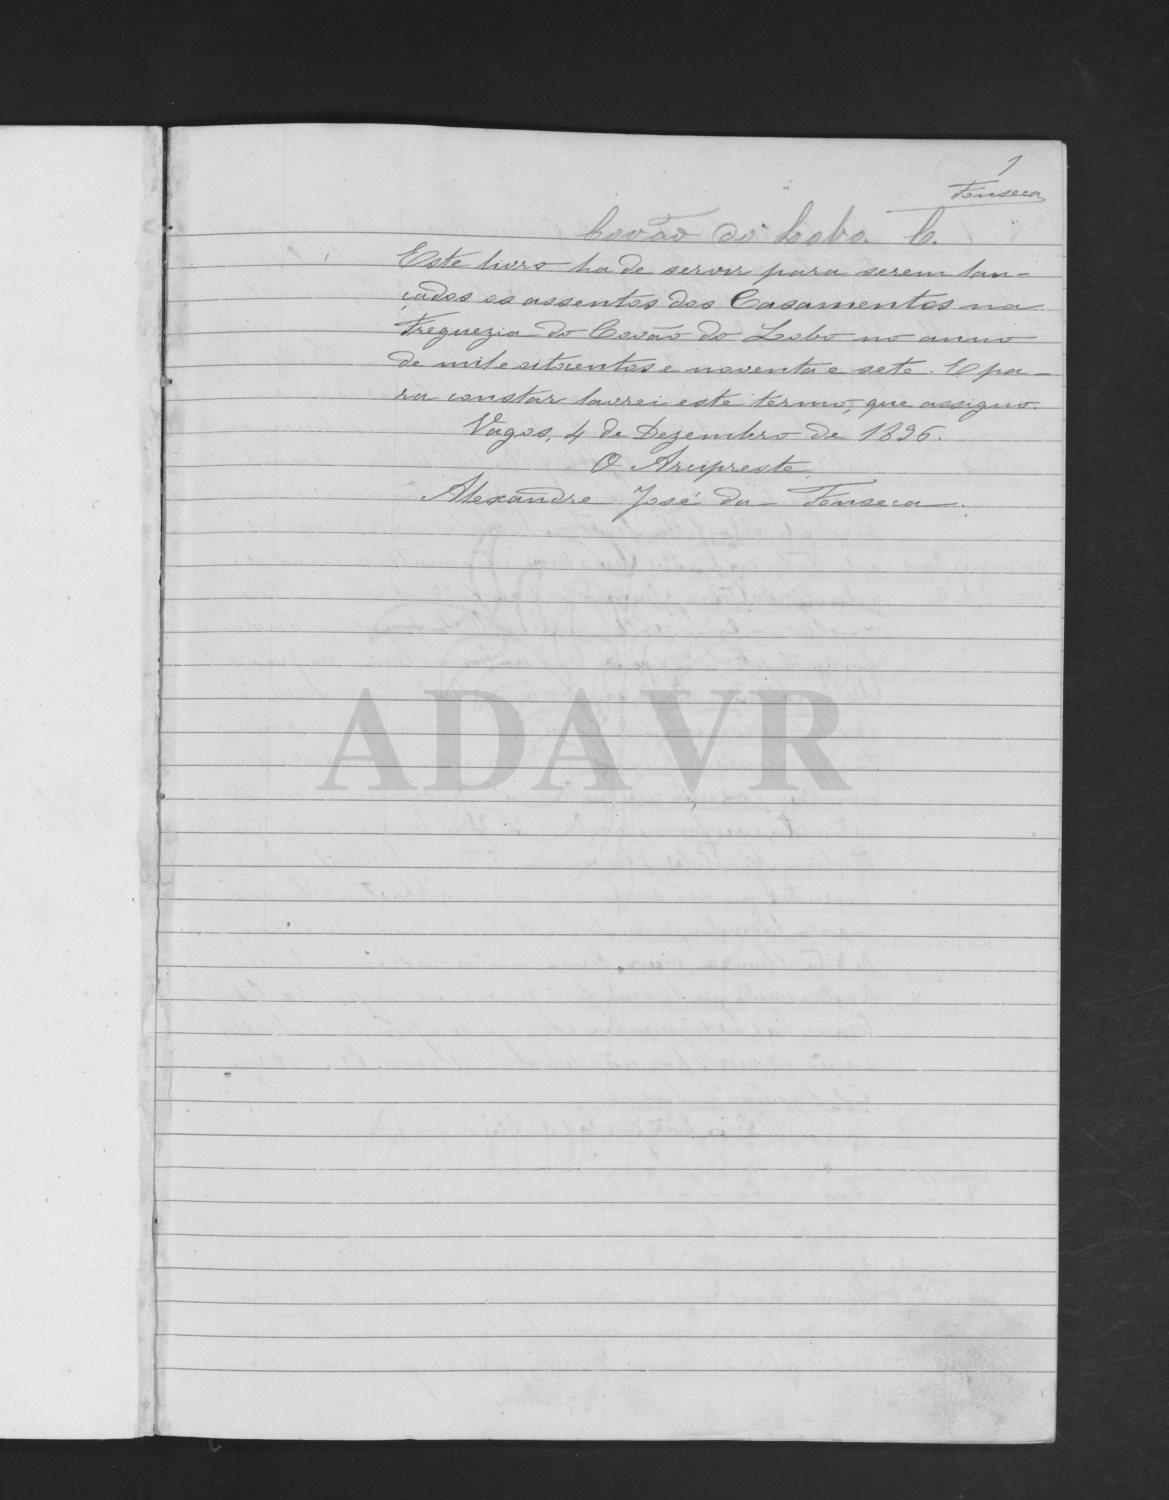 1
Fonseca
Covão do Lobo. C.
Este livro ha de servir para serem lan-
çados os assentos dos Casamentos na
Freguezia do Covão do Lobo no anno
de mil e oitocentos e noventa e sete. E pa-
ra constar lavrei este termo, que assigno.
Vagos, 4 de Dezembro de 1896.
O Arcipreste,
Alexandre José da Fonseca.
ADAVR